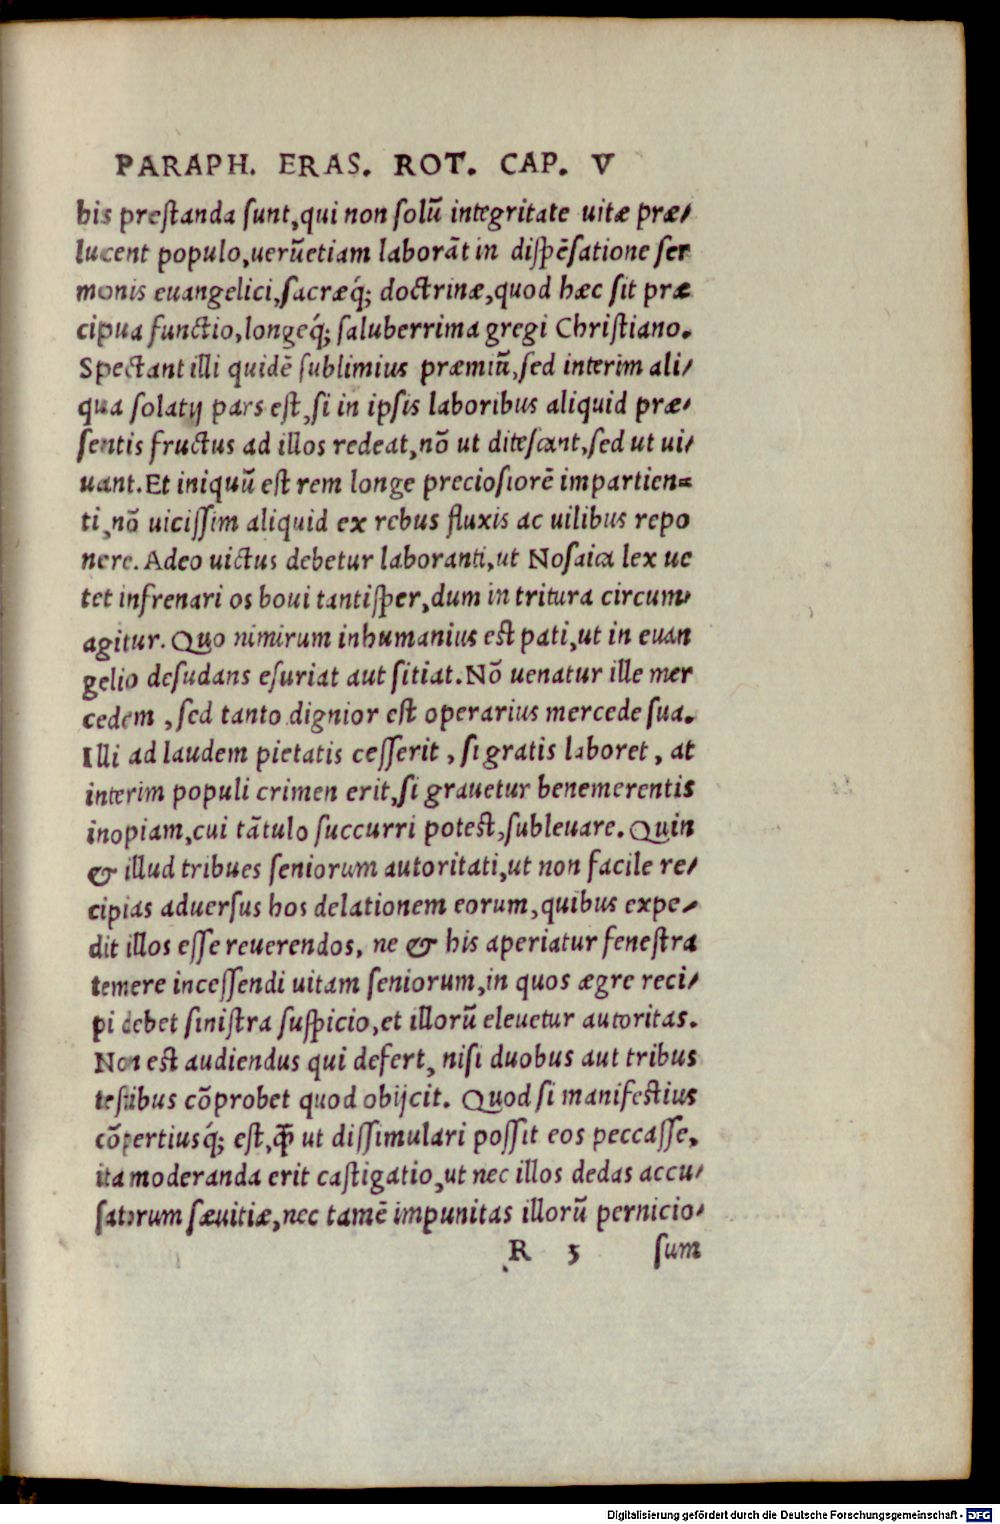 PARAPH. ERAS. ROT. CAP. V
bis prestanda sunt,qui non solũ integritate uitæ præ/
lucent populo,uerũetiam laborãt in dispẽsatione ser
monis euangelici,sacræq́; doctrinæ,quod hæc sit præ
cipua functio,longeq́; saluberrima gregi Christiano.
Spectant illi quidẽ sublimius præmiũ,sed interim ali/
qua solatij pars est,si in ipsis laboribus aliquid præ/
sentis fructus ad illos redeat,nõ ut ditescant,sed ut ui/
uant.Et iniquũ est rem longe preciosiorẽ impartien=
ti,nõ uicissim aliquid ex rebus fluxis ac uilibus repo
nere. Adeo uictus debetur laboranti,ut Nosaica lex ue
tet infrenari os boui tantisper,dum in tritura circum/
agitur. Quo nimirum inhumanius est pati,ut in euan
gelio desudans esuriat aut sitiat.Nõ uenatur ille mer
cedem ,sed tanto dignior est operarius mercede sua.
Illi ad laudem pietatis cesserit , si gratis laboret , at
interim populi crimen erit,si grauetur benemerentis
inopiam,cui tãtulo succurri potest,subleuare. Quin
& illud tribues seniorum autoritati,ut non facile re/
cipias aduersus hos delationem eorum,quibus expe/
dit illos esse reuerendos, ne & his aperiatur fenestra
temere incessendi uitam seniorum,in quos ægre reci/
pi debet sinistra suspicio,et illorũ eleuetur autoritas.
Non est audiendus qui defert, nisi duobus aut tribus
testibus cõprobet quod obijcit. Quod si manifestius
cõpertiusq́; est,q̃ ut dissimulari possit eos peccasse,
ita moderanda erit castigatio,ut nec illos dedas accu/
satorum sæuitiæ,nec tamẽ impunitas illorũ pernicio/
R 5 sum
Digitalisierung gefördert durch die Deutsche Forschungsgemeinschaft - DFG